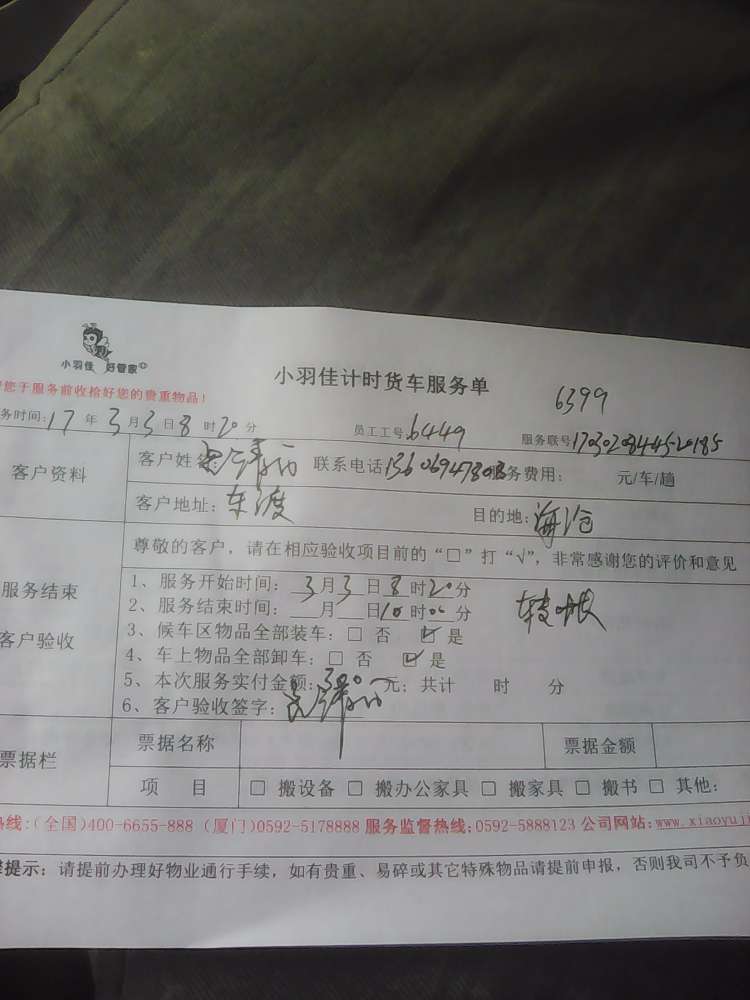 小羽佳 好管家
小羽佳计时货车服务单
6399
您于服务前收拾好您的贵重物品！
务时间：17年3月3日8时20分 员工工号6449 服务联号
客户资料
客户姓 联系电话 务费用： 元/车/趟
客户地址：东渡 目的地：海沧
尊敬的客户，请在相应验收项目前的“□”打“√”，非常感谢您的评价和意见
服务结束
客户验收
1、服务开始时间：3月3日8时20分
2、服务结束时间：月 日10时00分 转账
3、候车区物品全部装车：□ 否 ☑ 是
4、车上物品全部卸车：□ 否 ☑ 是
5、本次服务实付金额：300元；共计 时 分
6、客户验收签字：
票据栏
票据名称 票据金额
项 目 □ 搬设备 □ 搬办公家具 □ 搬家具 □ 搬书 □ 其他：
热线：(全国)400-6655-888 (厦门)0592-5178888 服务监督热线：0592-5888123 公司网站：www.xiaoyuj
提示：请提前办理好物业通行手续，如有贵重、易碎或其它特殊物品请提前申报，否则我司不予负